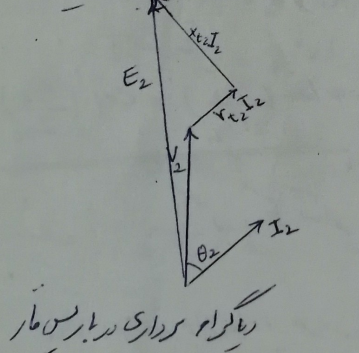 x_{t2}I_2
E_2
r_{t2}I_2
V_2
I_2
θ_2
دیاگرام برداری در بار پس فاز